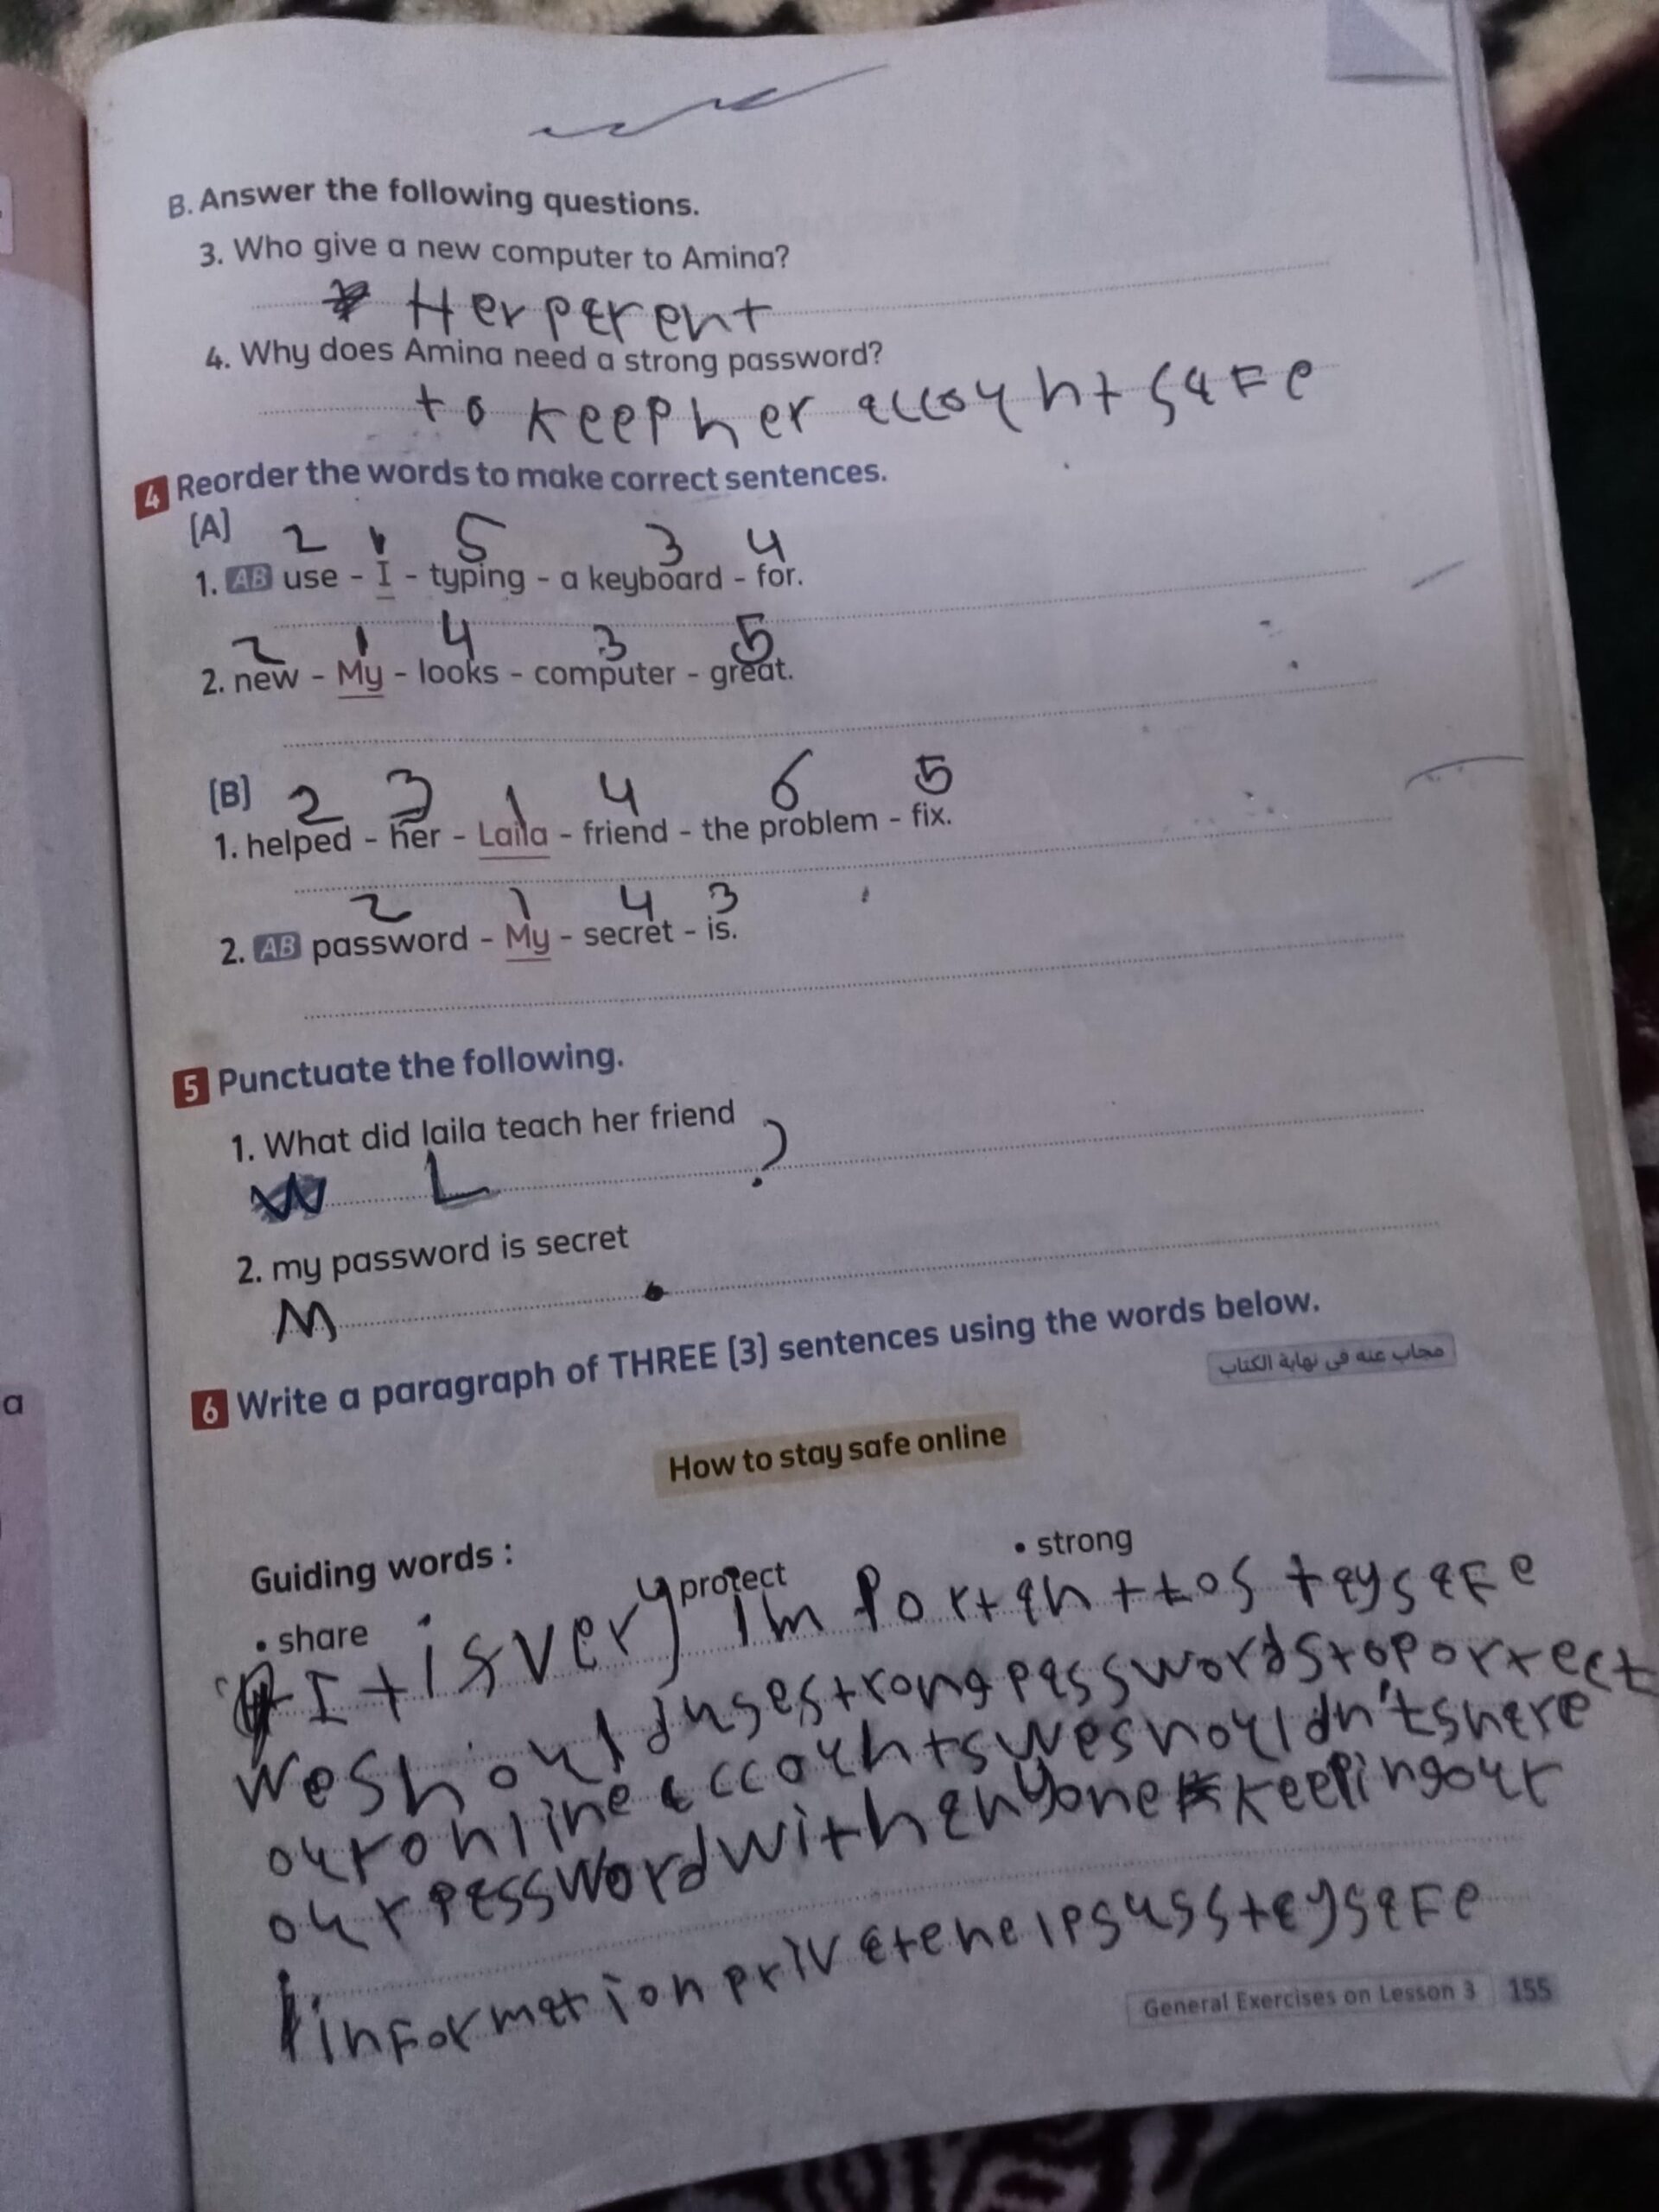 B. Answer the following questions.
3. Who give a new computer to Amina?
Her perent
4. Why does Amina need a strong password?
to keep her account safe
4 Reorder the words to make correct sentences.
[A]
2 1 5 3 4
1. AB use - I - typing - a keyboard - for.
2 1 4 3 5
2. new - My - looks - computer - great.
[B]
2 3 1 4 6 5
1. helped - her - Laila - friend - the problem - fix.
2 1 4 3
2. AB password - My - secret - is.
5 Punctuate the following.
1. What did laila teach her friend
W L ?
2. my password is secret
M .
6 Write a paragraph of THREE (3) sentences using the words below.
مجاب عنه فى نهاية الكتاب
How to stay safe online
Guiding words :
• share
protect
• strong
It is very important to stay safe
we should use strong passwords to portect
our online accounts we shouldn't share
our password with anyone keeping our
information private helps us stay safe
General Exercises on Lesson 3 155
a